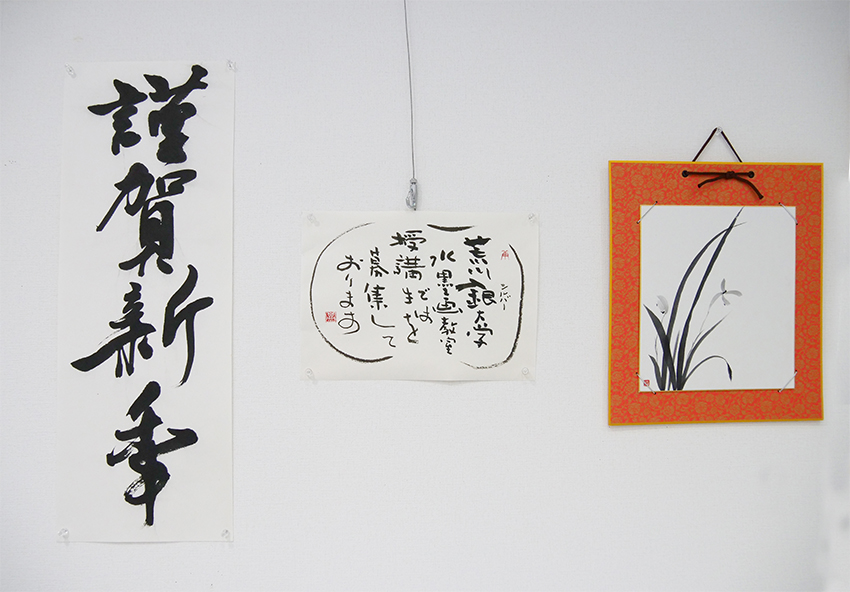 謹賀新年
荒川銀大学
シルバー
水墨画教室
では
授講生を
募集して
おります